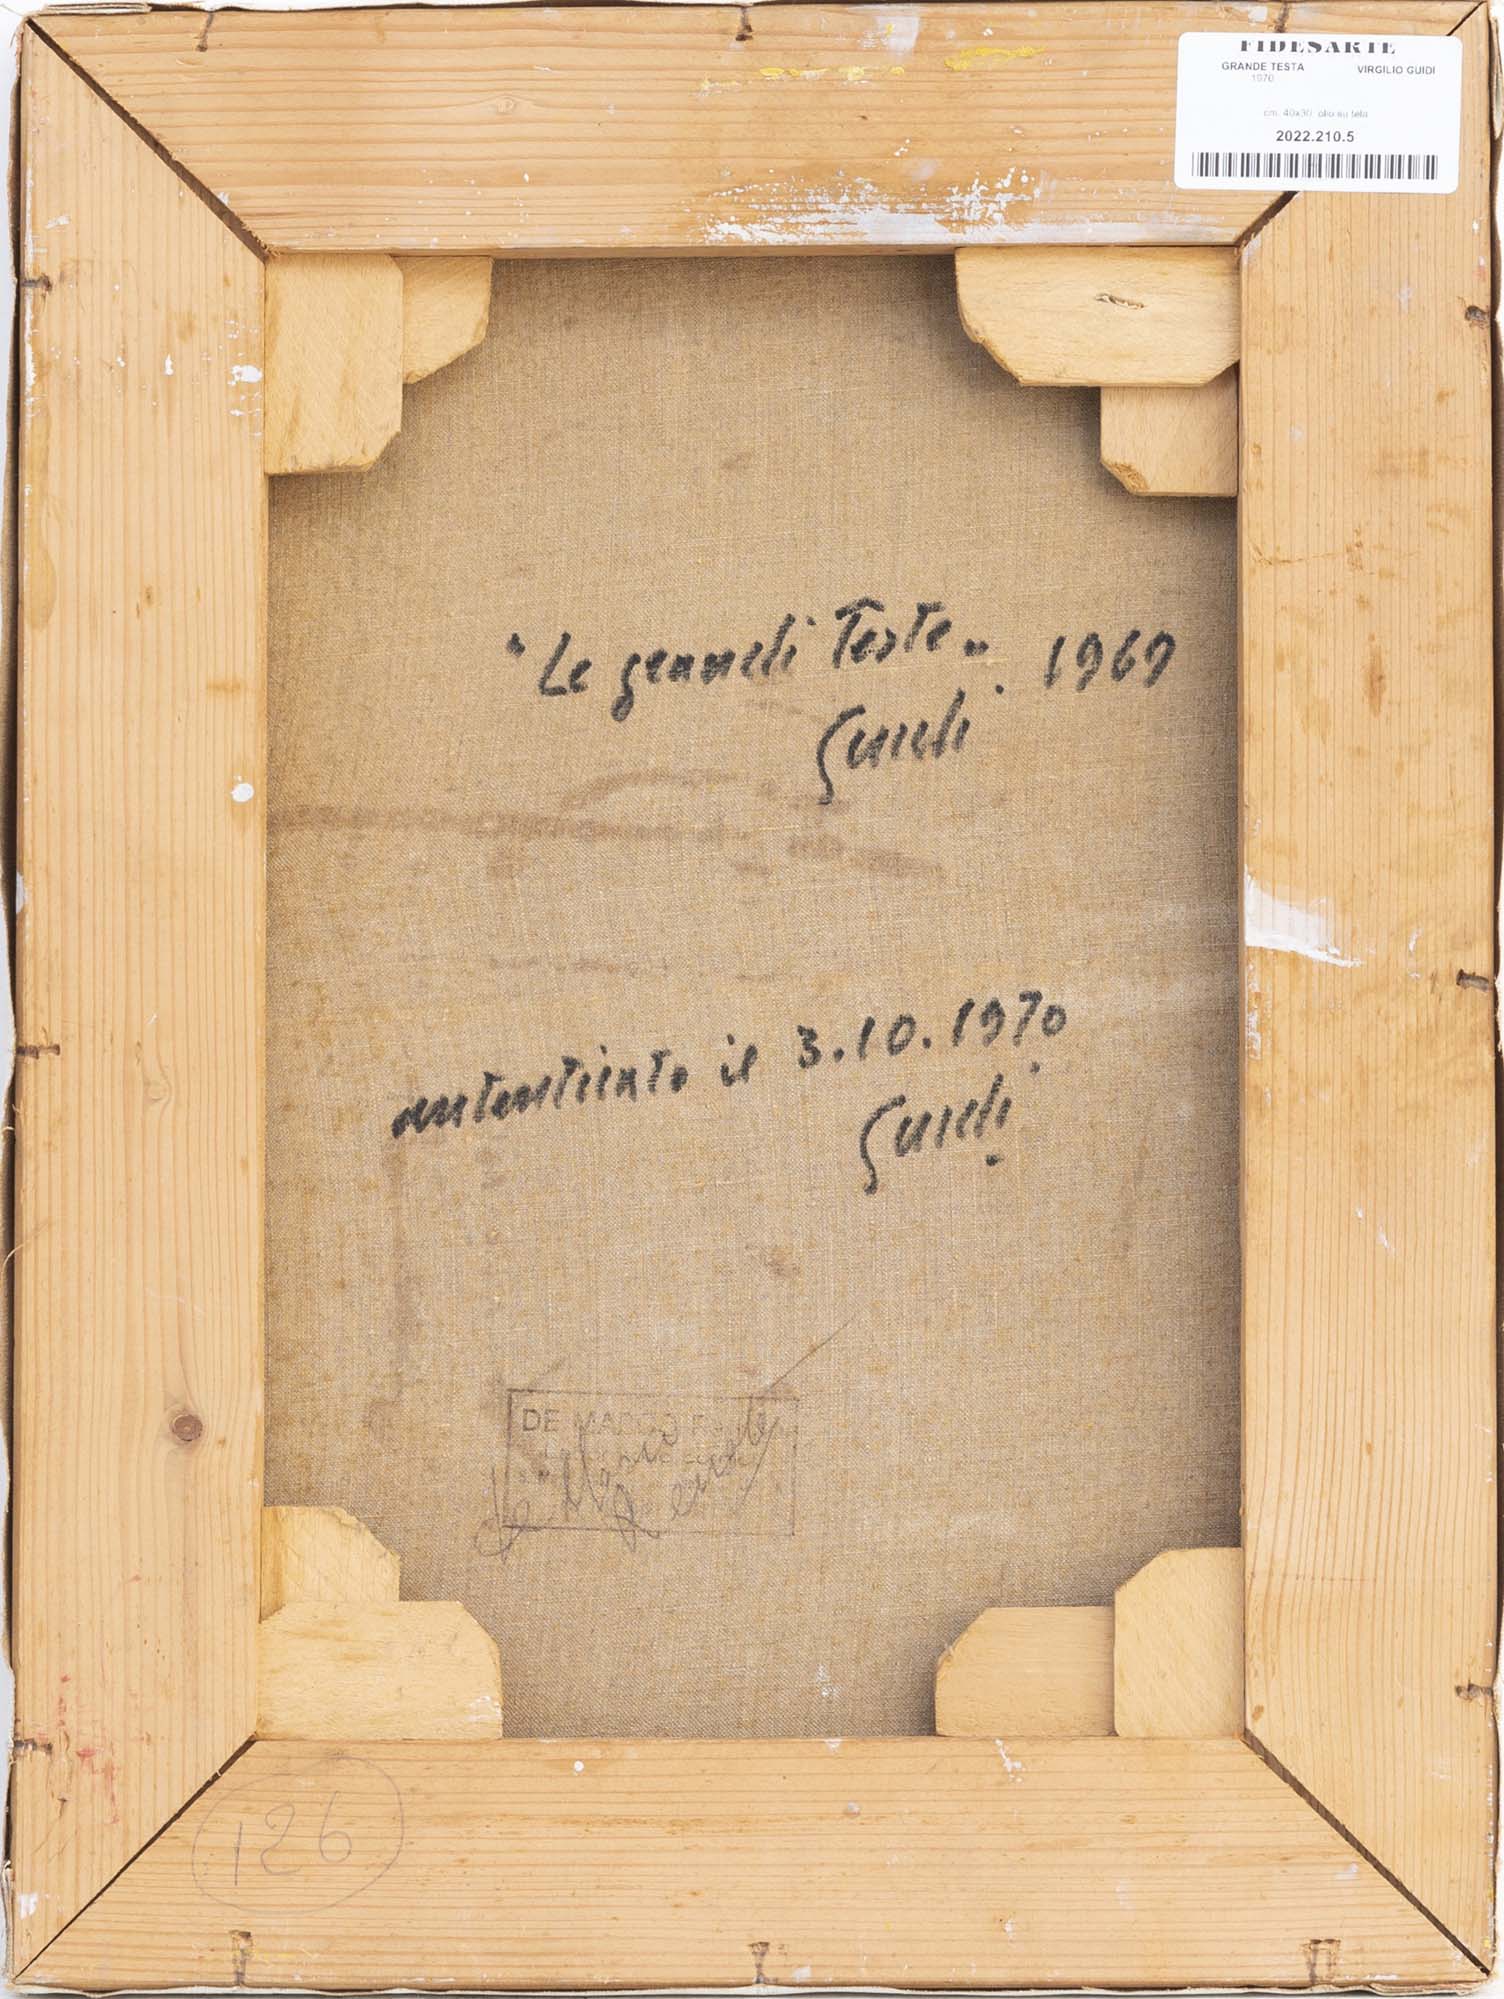 FIDESARTE
GRANDE TESTA VIRGILIO GUIDI
1970
cm. 40x30, olio su tela
2022.210.5
"Le grandi Teste" 1969
Guidi
autenticato il 3.10.1970
Guidi
DE MARCO
126